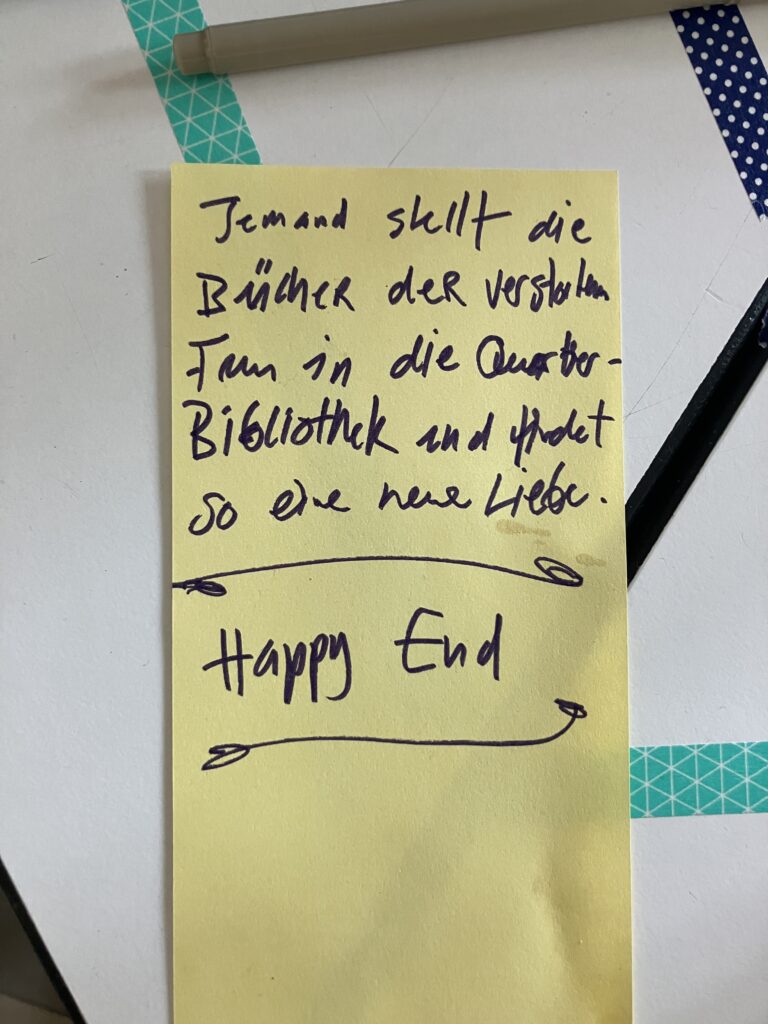 Jemand stellt die
Bücher der verstorbenen
Frau in die Quartier-
Bibliothek und findet
so eine neue Liebe.
Happy End